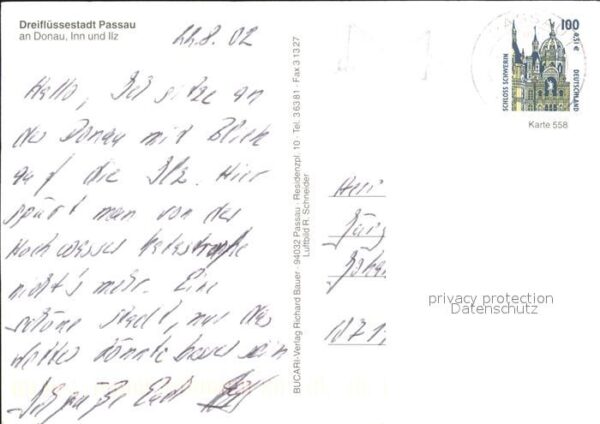 Dreiflüssestadt Passau
an Donau, Inn und Ilz
22.8.02
Hallo, Ich sitze an
der Donau mit Blick
auf die Ilz. Hier
spürt man von der
Hochwasser Katastrophe
nicht's mehr. Eine
schöne Stadt, nur das
Wetter könnte besser sein
Ich grüße Euch
BUCARI-Verlag Richard Bauer · 94032 Passau · Residenzpl. 10 · Tel. 3 63 81 · Fax 3 13 27
Luftbild R. Schneider
100
0,51 €
SCHLOSS SCHWERIN
DEUTSCHLAND
Karte 558
privacy protection
Datenschutz